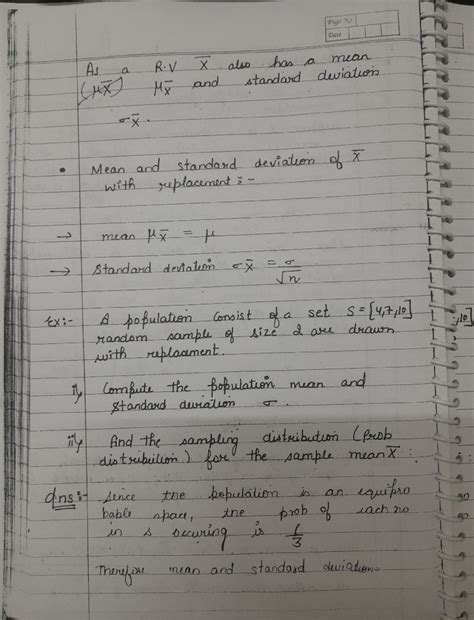 Page No.
Date
As a R.V X̅ also has a mean
(μX̅) μX̅ and standard deviation
σX̅.
• Mean and standard deviation of X̅
with replacement :-
→ mean μX̅ = μ
→ Standard deviation σX̅ = σ/√n
Ex:- A population consist of a set S = [4,7,10]
random sample of size 2 are drawn
with replacment.
i) Compute the population mean and
standard deviation σ.
ii) And the sampling distribution (prob
distribution) for the sample mean X̅ :
Ans:- Since the population is an equipro
bable space, the prob of each no
in s occuring is 1/3
Therefore mean and standard deviation=
10]